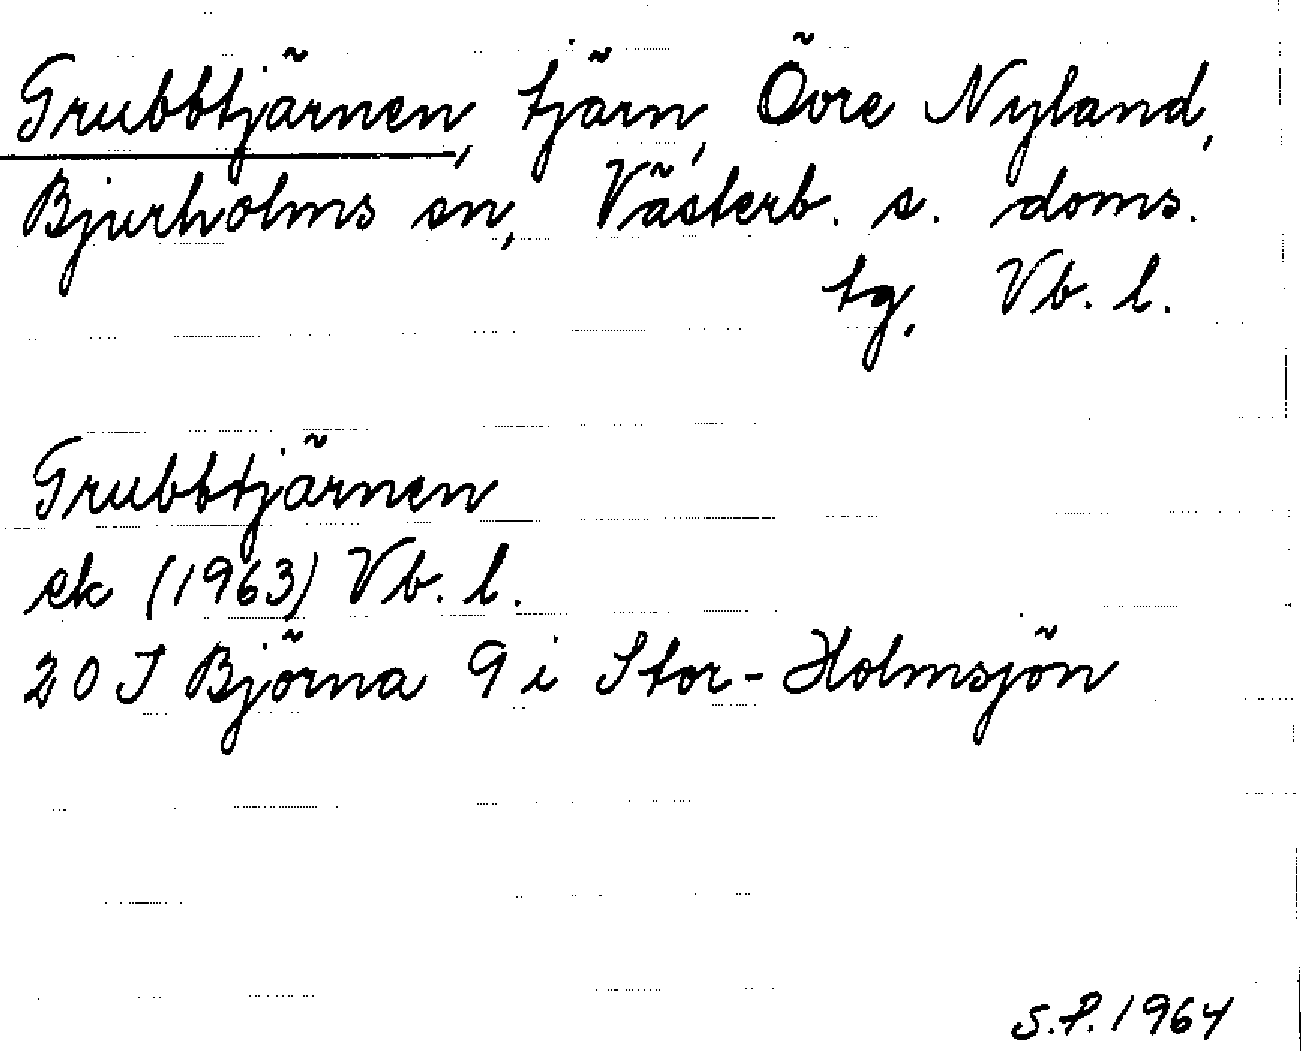 Grubbtjärnen, tjärn, Övre Nyland,
Bjurholms sn, Västerb. s. doms.
tg. Vb. l.
Grubbtjärnen
ek (1963) Vb. l.
20 J Björna 9 i Stor-Holmsjön
S.P. 1964